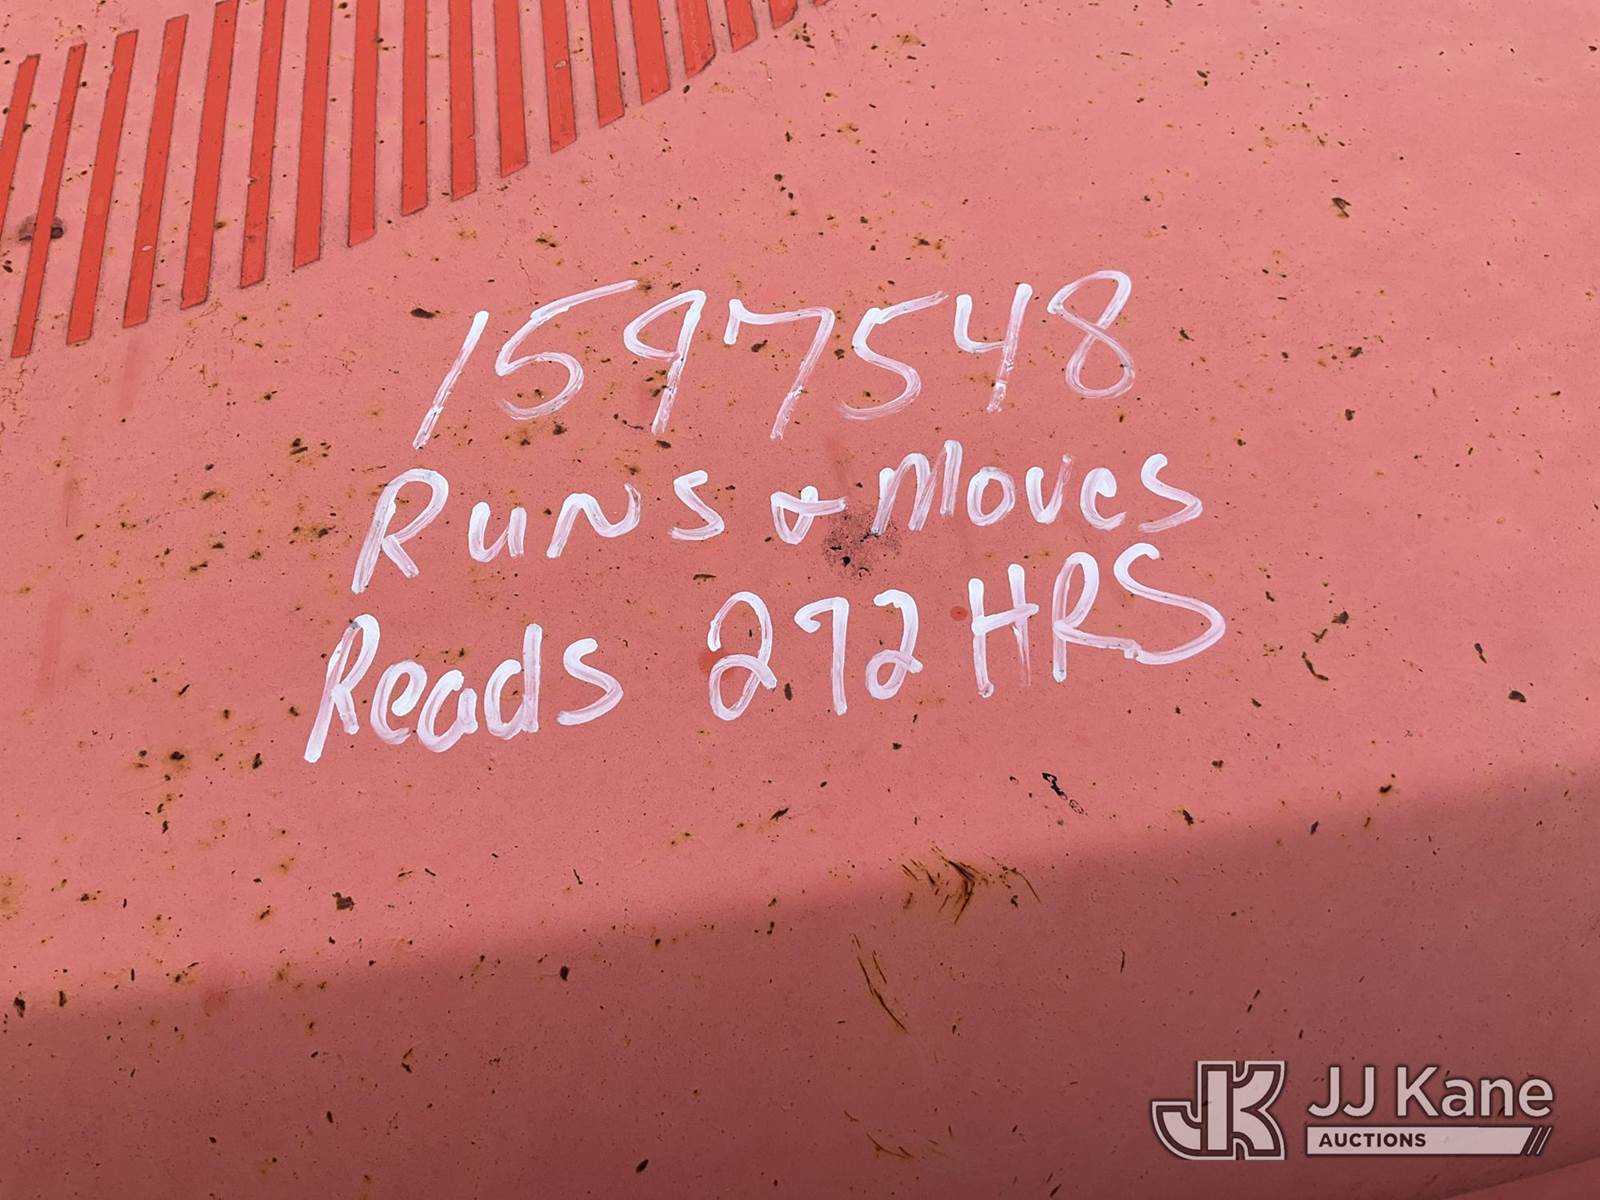 1597548
Runs & Moves
Reads 272 HRS
JK JJ Kane
AUCTIONS